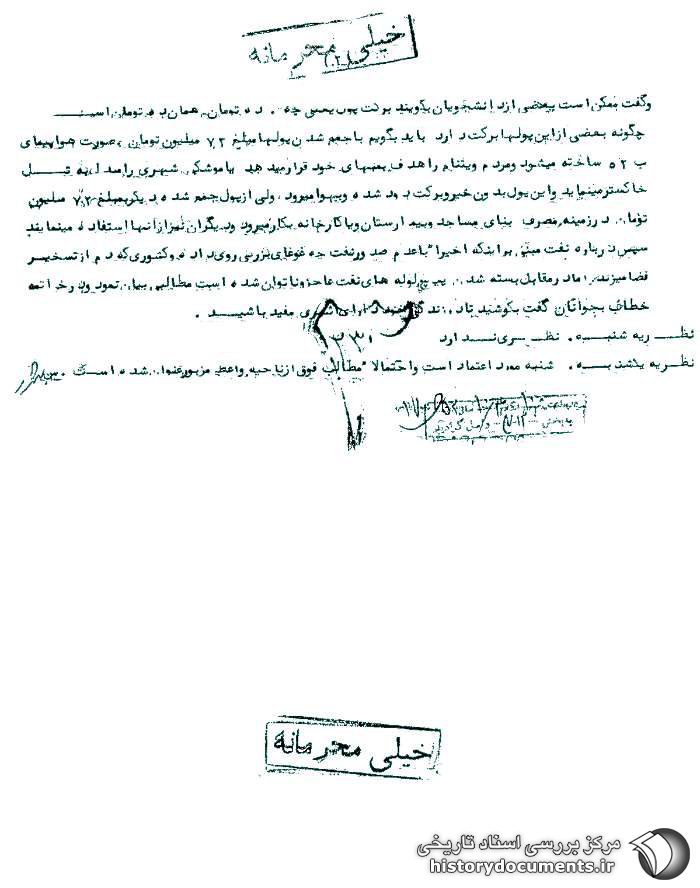 خیلی محرمانه
(۲)
وگفت ممکن است بعضی ازدانشجویان بگویند برکت پول یعنی چه . ده تومان، همان ده تومان است
چگونه بعضی از این پولها برکت دارد باید بگویم با جمع شدن پولها مبلغ ۷۲ میلیون تومان بصورت هواپیمای
ب ۵۲ ساخته میشود ومردم ویتنام را هدف بمبهای خود قرارمیدهد یا موشکی شهری را مبدل به تل
خاکستر مینماید واین پول بدون خیر وبرکت بوده وبیهوا میرود، ولی از پول جمع شده دیگر مبلغ ۷۲ میلیون
تومان درزمینه مصرف بنای مساجد وبیمارستان ویا کارخانه بکار میرود ودیگران نیز از آنها استفاده مینمایند
سپس درباره نفت مبنی براینکه اخیرا" باعدم صدور نفت چه غوغای بزرگی روی داده وکشوری که دم از تسخیر
فضا میزند، اما در مقابل بسته شدن پیچ لوله های نفت عاجز وناتوان شده است مطالبی بیان نمود ودر خاتمه
خطاب بجوانان گفت بکوشید تا در زندگی خود دارای مفید باشید .
نظریه شنبه . نظری ندارد
نظریه یکشنبه . شنبه مورد اعتماد است واحتمالا" مطالب فوق ازناحیه واعظ مزبور عنوان شده است .
خیلی محرمانه
مرکز بررسی اسناد تاریخی
historydocuments.ir